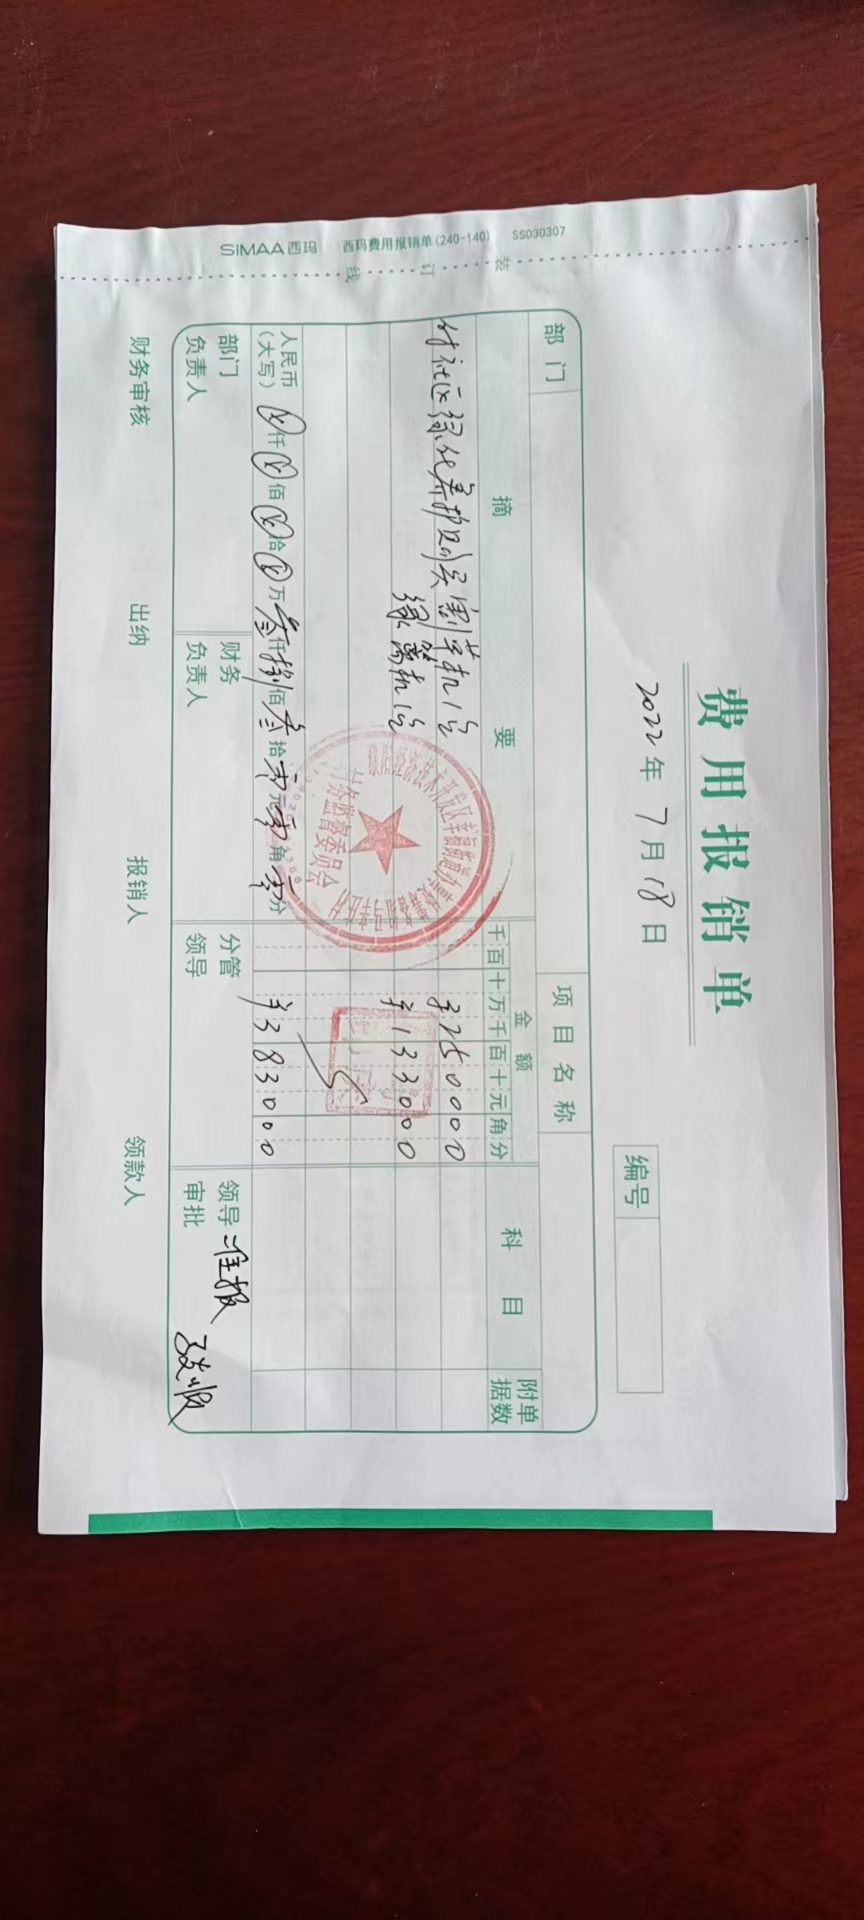 SIMAA西玛 西玛费用报销单(240-140) SS030307
装 订 线
费用报销单
2022年7月18日
编号
部门
项目名称
摘要
金额
科目
附单据数
千百十万千百十元角分
付社区绿化养护购买割草机1台
¥250000
绿篱机1台
¥133000
人民币(大写) ⊗仟⊗佰⊗拾⊗万叁仟捌佰叁拾零元零角零分
¥383000
部门负责人
财务负责人
分管领导
领导审批
准报
财务审核
出纳
报销人
领款人
监督委员会